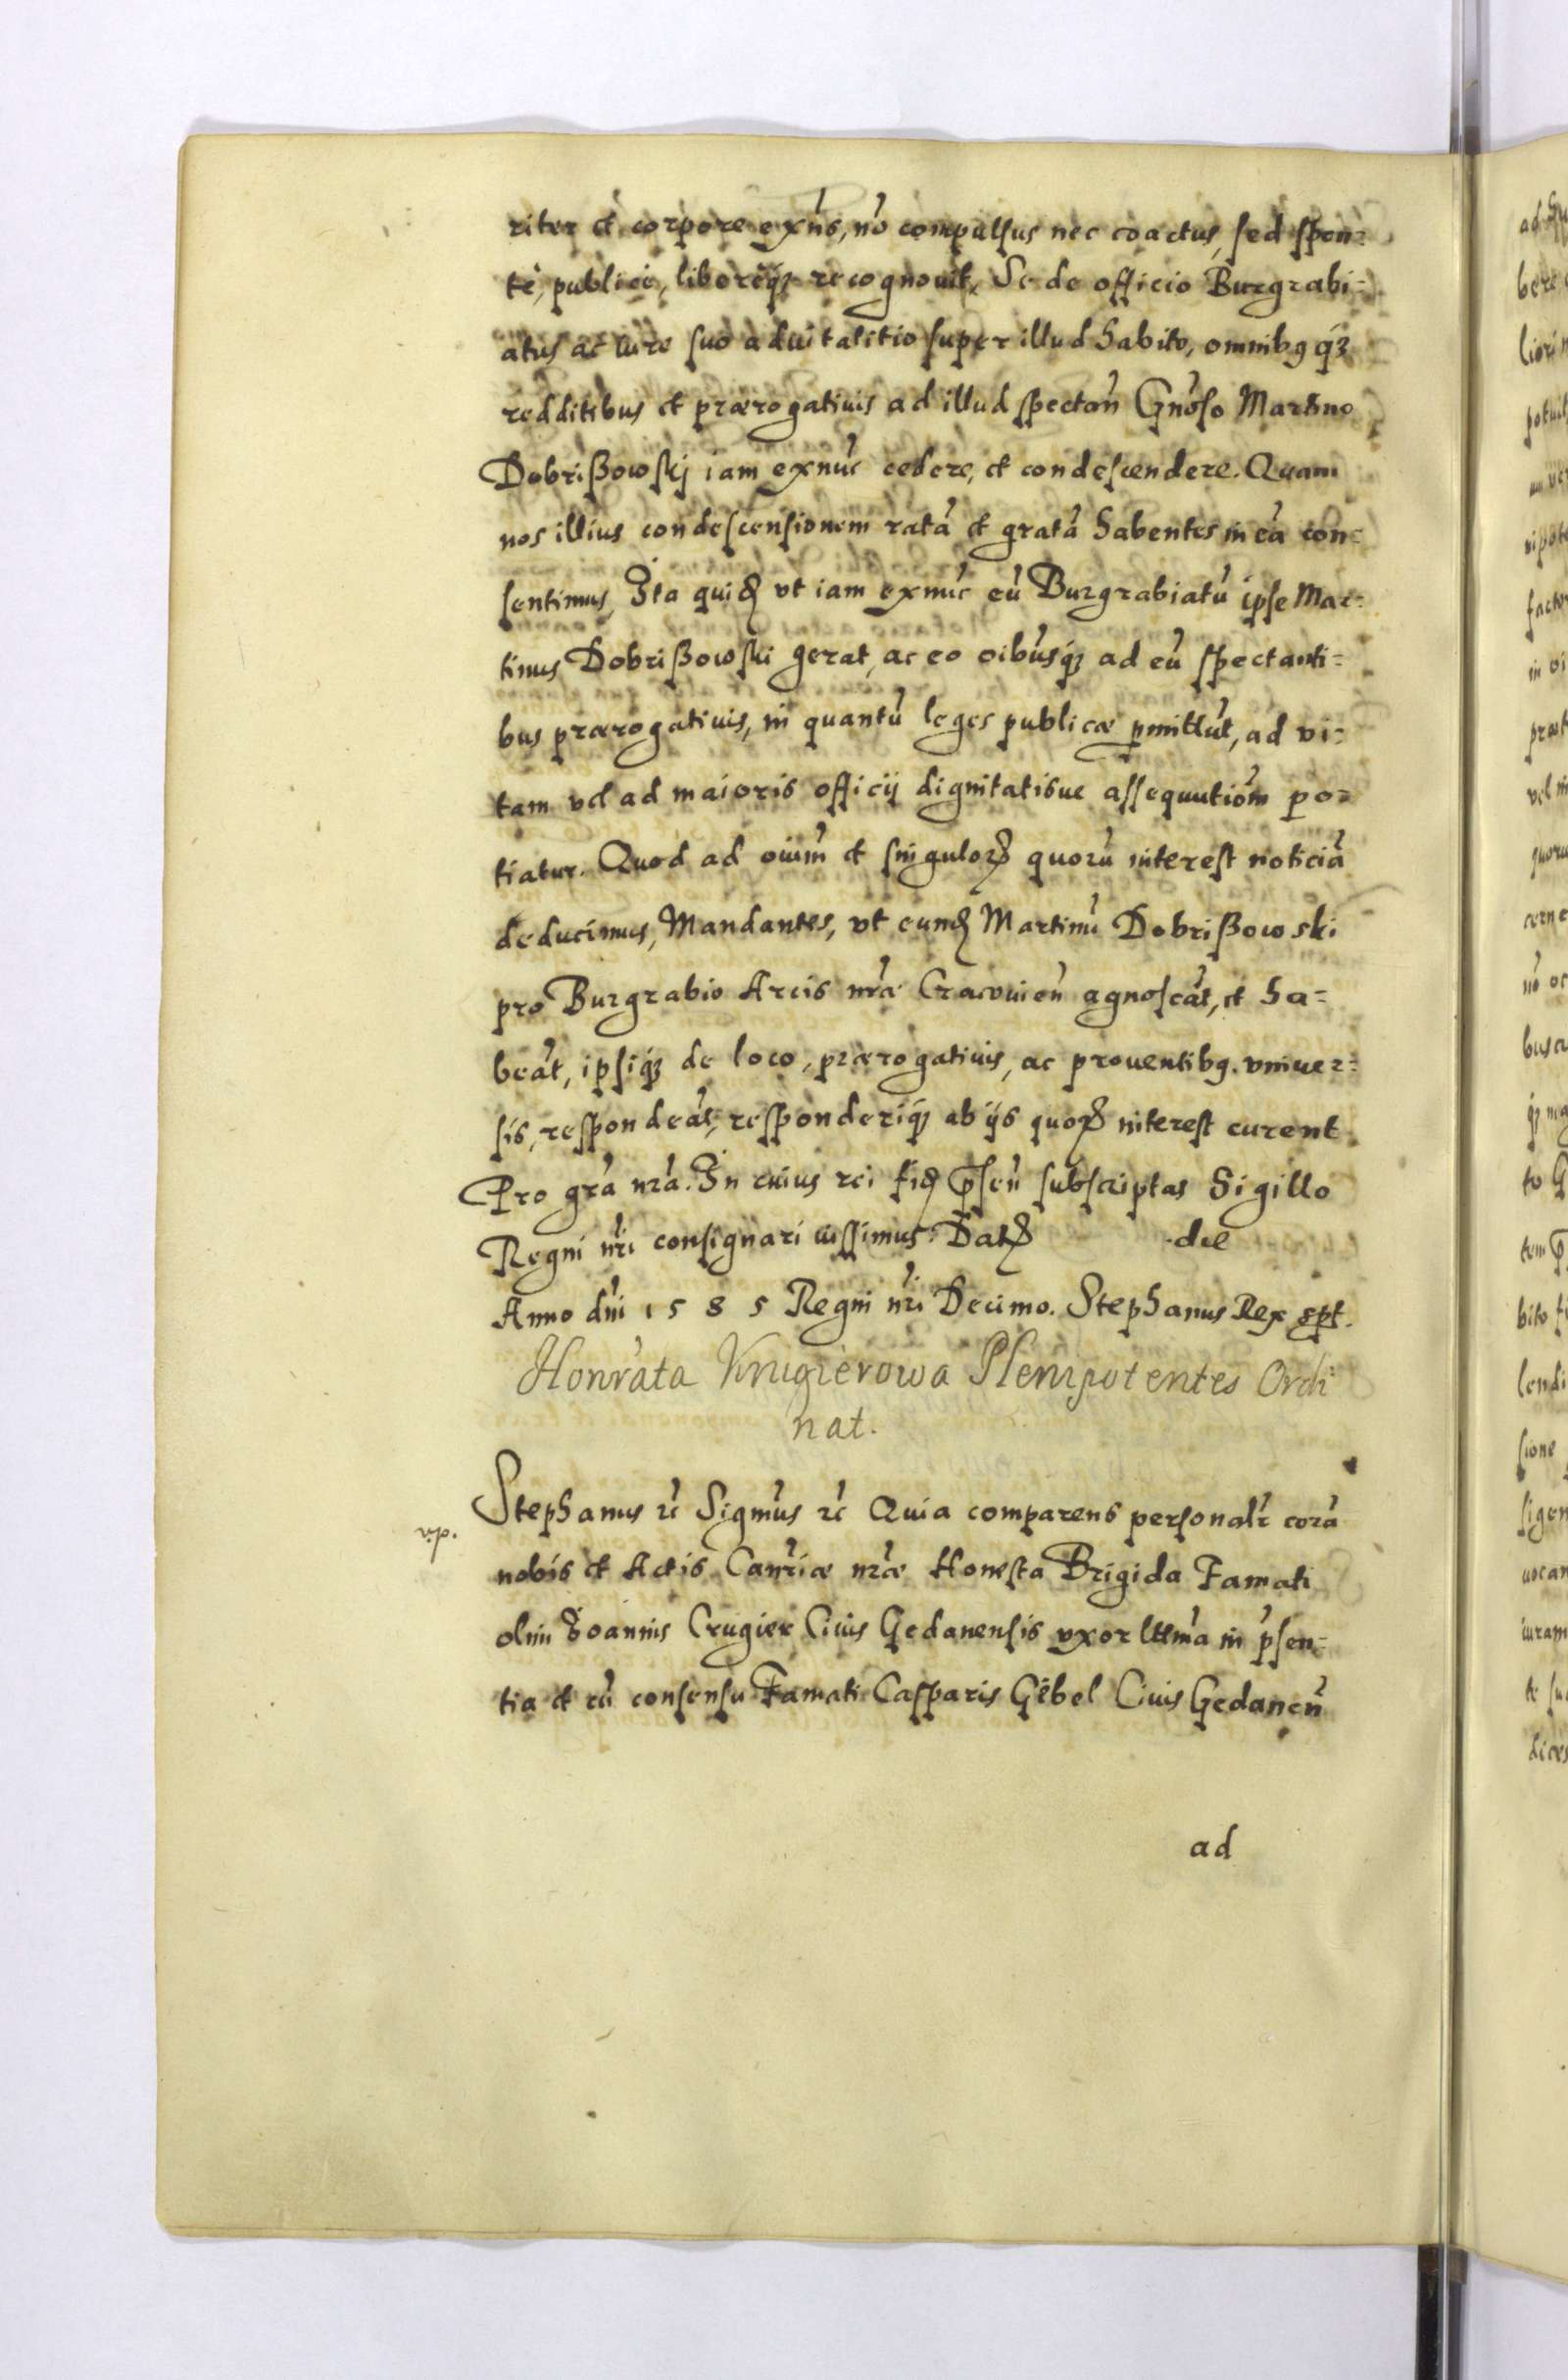 riter et corpore exñs, nõ compulsus nec coactus, sed spon=
te, publice, libereq̃ recognouit, Se de officio Burgrabi=
atus ac iure suo aduitalitio super illud habito, omnibq q̃
redditibus et prærogatiuis ad illud specton̄ Gñoso Martino
Dobrißowskj iam exnũc cedere, et condescendere. Quam
nos illius condescensionem ratã et gratã habentes in eã con=
sentimus, Ita quiđ vt iam exnũc eũ Burgrabiatũ ipse Mar=
tinus Dobrißowski gerat, ac eo oĩbusq̃ ad eũ spectanti=
bus prærogatiuis, in quantũ leges publicæ pmittũt, ad vi=
tam vel ad maioris officij dignitatisue assequutiõm po=
tiatur. Quod ad oĩum et singuloꝝ quorũ interest noticiã
deducimus, Mandantes, vt eunđ Martinũ Dobrißowski
pro Burgrabio Arcis nr̃æ Cracouien̄ agnoscãt, et ha=
beãt, ipsiq̃ de loco, prærogatiuis, ac prouentibq. vniuer=
sis, respondeãt, responderiq̃ ab ijs quoꝝ interest curent
Pro gr̃a nr̃a. In cuius rei fiđ p̃sen̄ subscriptas Sigillo
Regni nr̃i consignari iussimus. Datꝝ die
Anno dñi 1585 Regni nr̃i Decimo. Stephanus Rex spt.
Honrata Krugierowa Plenipotentes Ordi
nat.
Stephanus rc̃ Sigmũs rc̃ Quia comparens personalr̃ corã
nobis et Actis Canr̃iæ nr̃æ Honesta Brigida Famati
olim Joannis Crugier Ciuis Gedanensis vxor lttm̃a in p̃sen=
tia et cũ consensu Famati Casparis Gëbel Ciuis Gedanen̄
ad